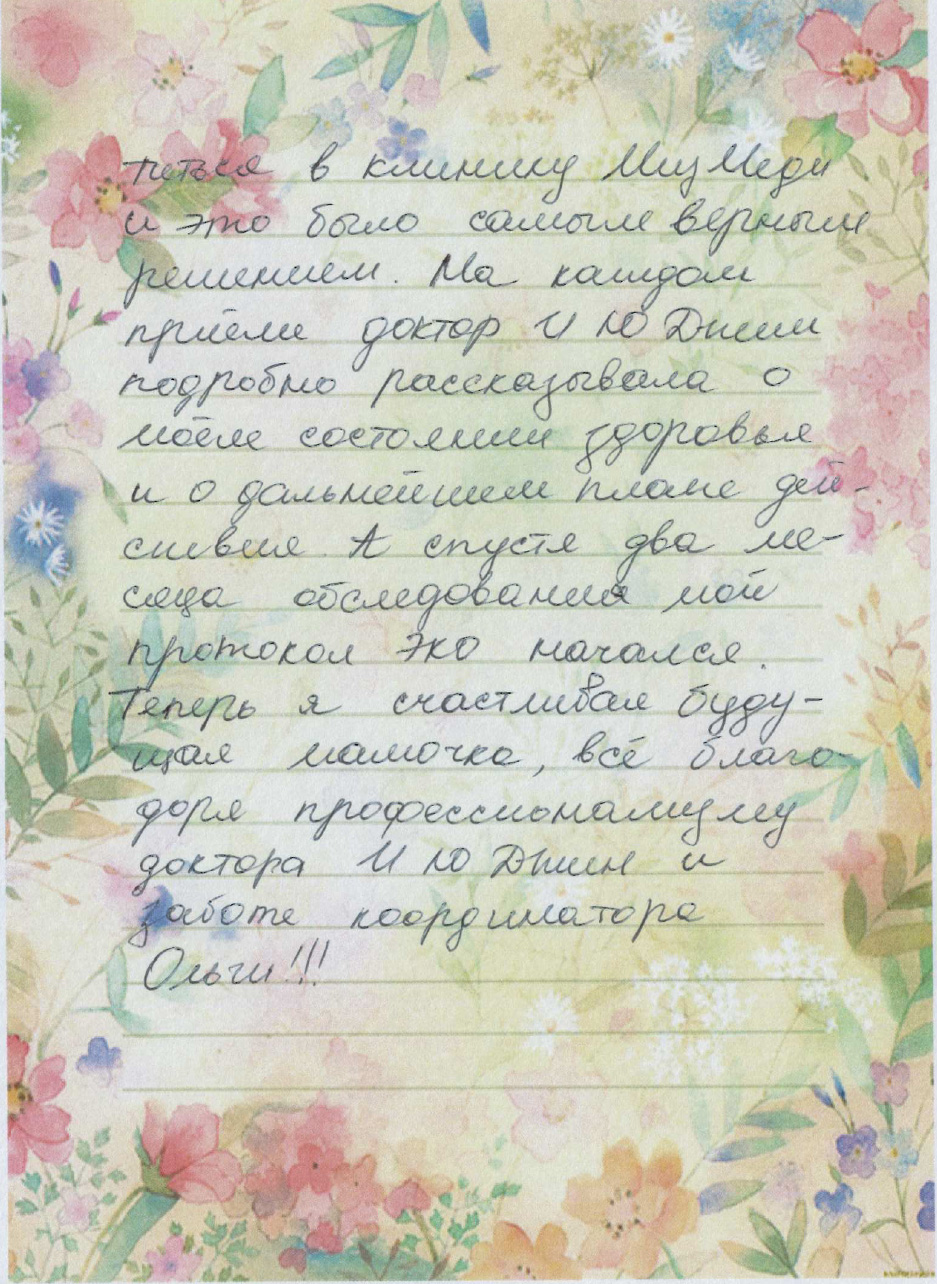 титься в клинику МизМеди
и это было самым верным
решением. На каждом
приёме доктор И Ю Джин
подробно рассказывала о
моём состоянии здоровья
и о дальнейшем плане дей-
ствия. А спустя два ме-
сяца обследования мой
протокол эко начался.
Теперь я счастливая буду-
щая мамочка, всё благо-
доря профессионализму
доктора И Ю Джин и
заботе координатора
Ольги!!!